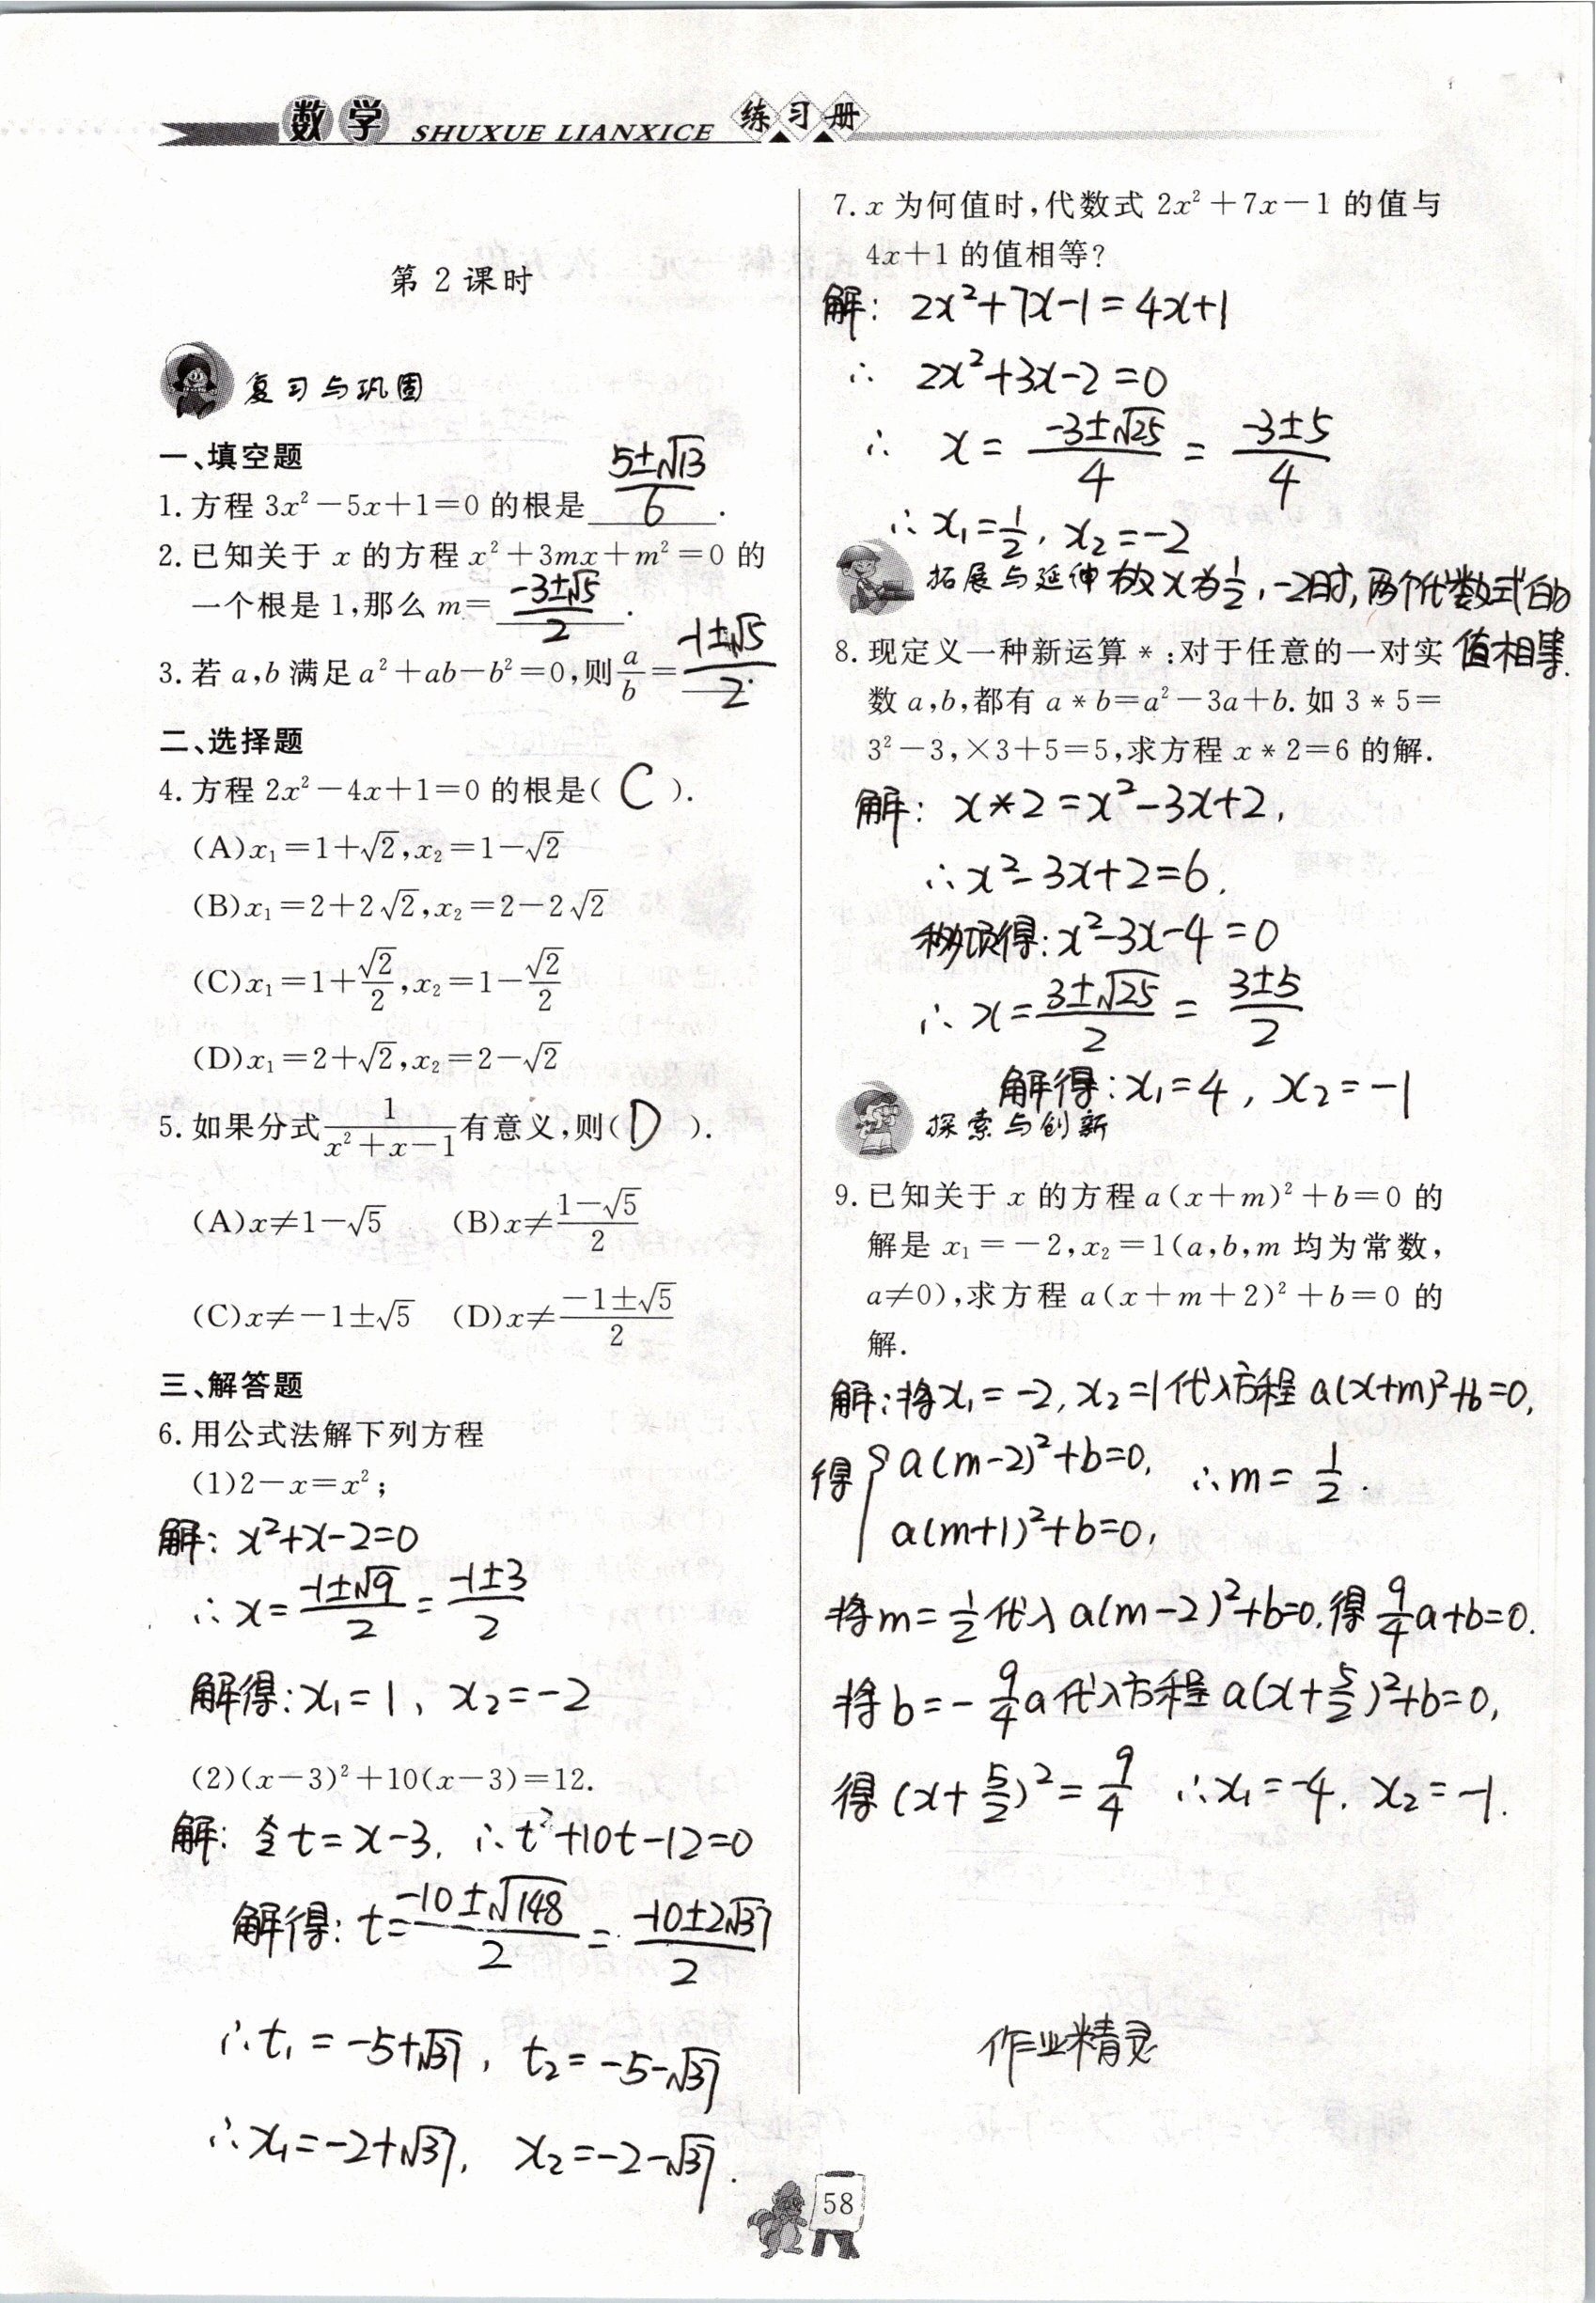 数学 SHUXUE LIANXICE 练习册
第 2 课时
复习与巩固
一、填空题
1. 方程 3x²－5x＋1＝0 的根是 (5±√13)/6 .
2. 已知关于 x 的方程 x²＋3mx＋m²＝0 的
一个根是 1,那么 m＝ (-3±√5)/2 .
3. 若 a,b 满足 a²＋ab－b²＝0,则 a/b ＝ (-1±√5)/2 .
二、选择题
4. 方程 2x²－4x＋1＝0 的根是( C ).
(A)x₁＝1＋√2,x₂＝1－√2
(B)x₁＝2＋2√2,x₂＝2－2√2
(C)x₁＝1＋√2/2,x₂＝1－√2/2
(D)x₁＝2＋√2,x₂＝2－√2
5. 如果分式 1/(x²＋x－1) 有意义,则( D ).
(A)x≠1－√5 (B)x≠(1－√5)/2
(C)x≠－1±√5 (D)x≠(－1±√5)/2
三、解答题
6. 用公式法解下列方程
(1)2－x＝x²;
解: x²+x-2=0
∴ x= (-1±√9)/2 = (-1±3)/2
解得: x₁=1, x₂=-2
(2)(x－3)²＋10(x－3)＝12.
解: 令 t=x-3, ∴t²+10t-12=0
解得: t= (-10±√148)/2 = (-10±2√37)/2
∴t₁=-5+√37, t₂=-5-√37
∴x₁=-2+√37, x₂=-2-√37.
7. x 为何值时,代数式 2x²＋7x－1 的值与
4x＋1 的值相等?
解: 2x²+7x-1=4x+1
∴ 2x²+3x-2=0
∴ x= (-3±√25)/4 = (-3±5)/4
∴x₁=1/2, x₂=-2
拓展与延伸 故x为1/2,-2时,两个代数式的
值相等.
8. 现定义一种新运算 * :对于任意的一对实
数 a,b,都有 a * b＝a²－3a＋b. 如 3 * 5＝
3²－3,×3＋5＝5,求方程 x * 2＝6 的解.
解: x*2=x²-3x+2,
∴x²-3x+2=6.
移项得: x²-3x-4=0
∴ x= (3±√25)/2 = (3±5)/2
解得: x₁=4, x₂=-1
探索与创新
9. 已知关于 x 的方程 a(x＋m)²＋b＝0 的
解是 x₁＝－2,x₂＝1(a,b,m 均为常数,
a≠0),求方程 a(x＋m＋2)²＋b＝0 的
解.
解:将x₁=-2, x₂=1代入方程 a(x+m)²+b=0,
得 { a(m-2)²+b=0, ∴m=1/2.
a(m+1)²+b=0,
将m=1/2代入 a(m-2)²+b=0,得 9/4a+b=0.
将b=-9/4a代入方程 a(x+5/2)²+b=0,
得 (x+5/2)²=9/4 ∴x₁=-4, x₂=-1.
作业精灵
58